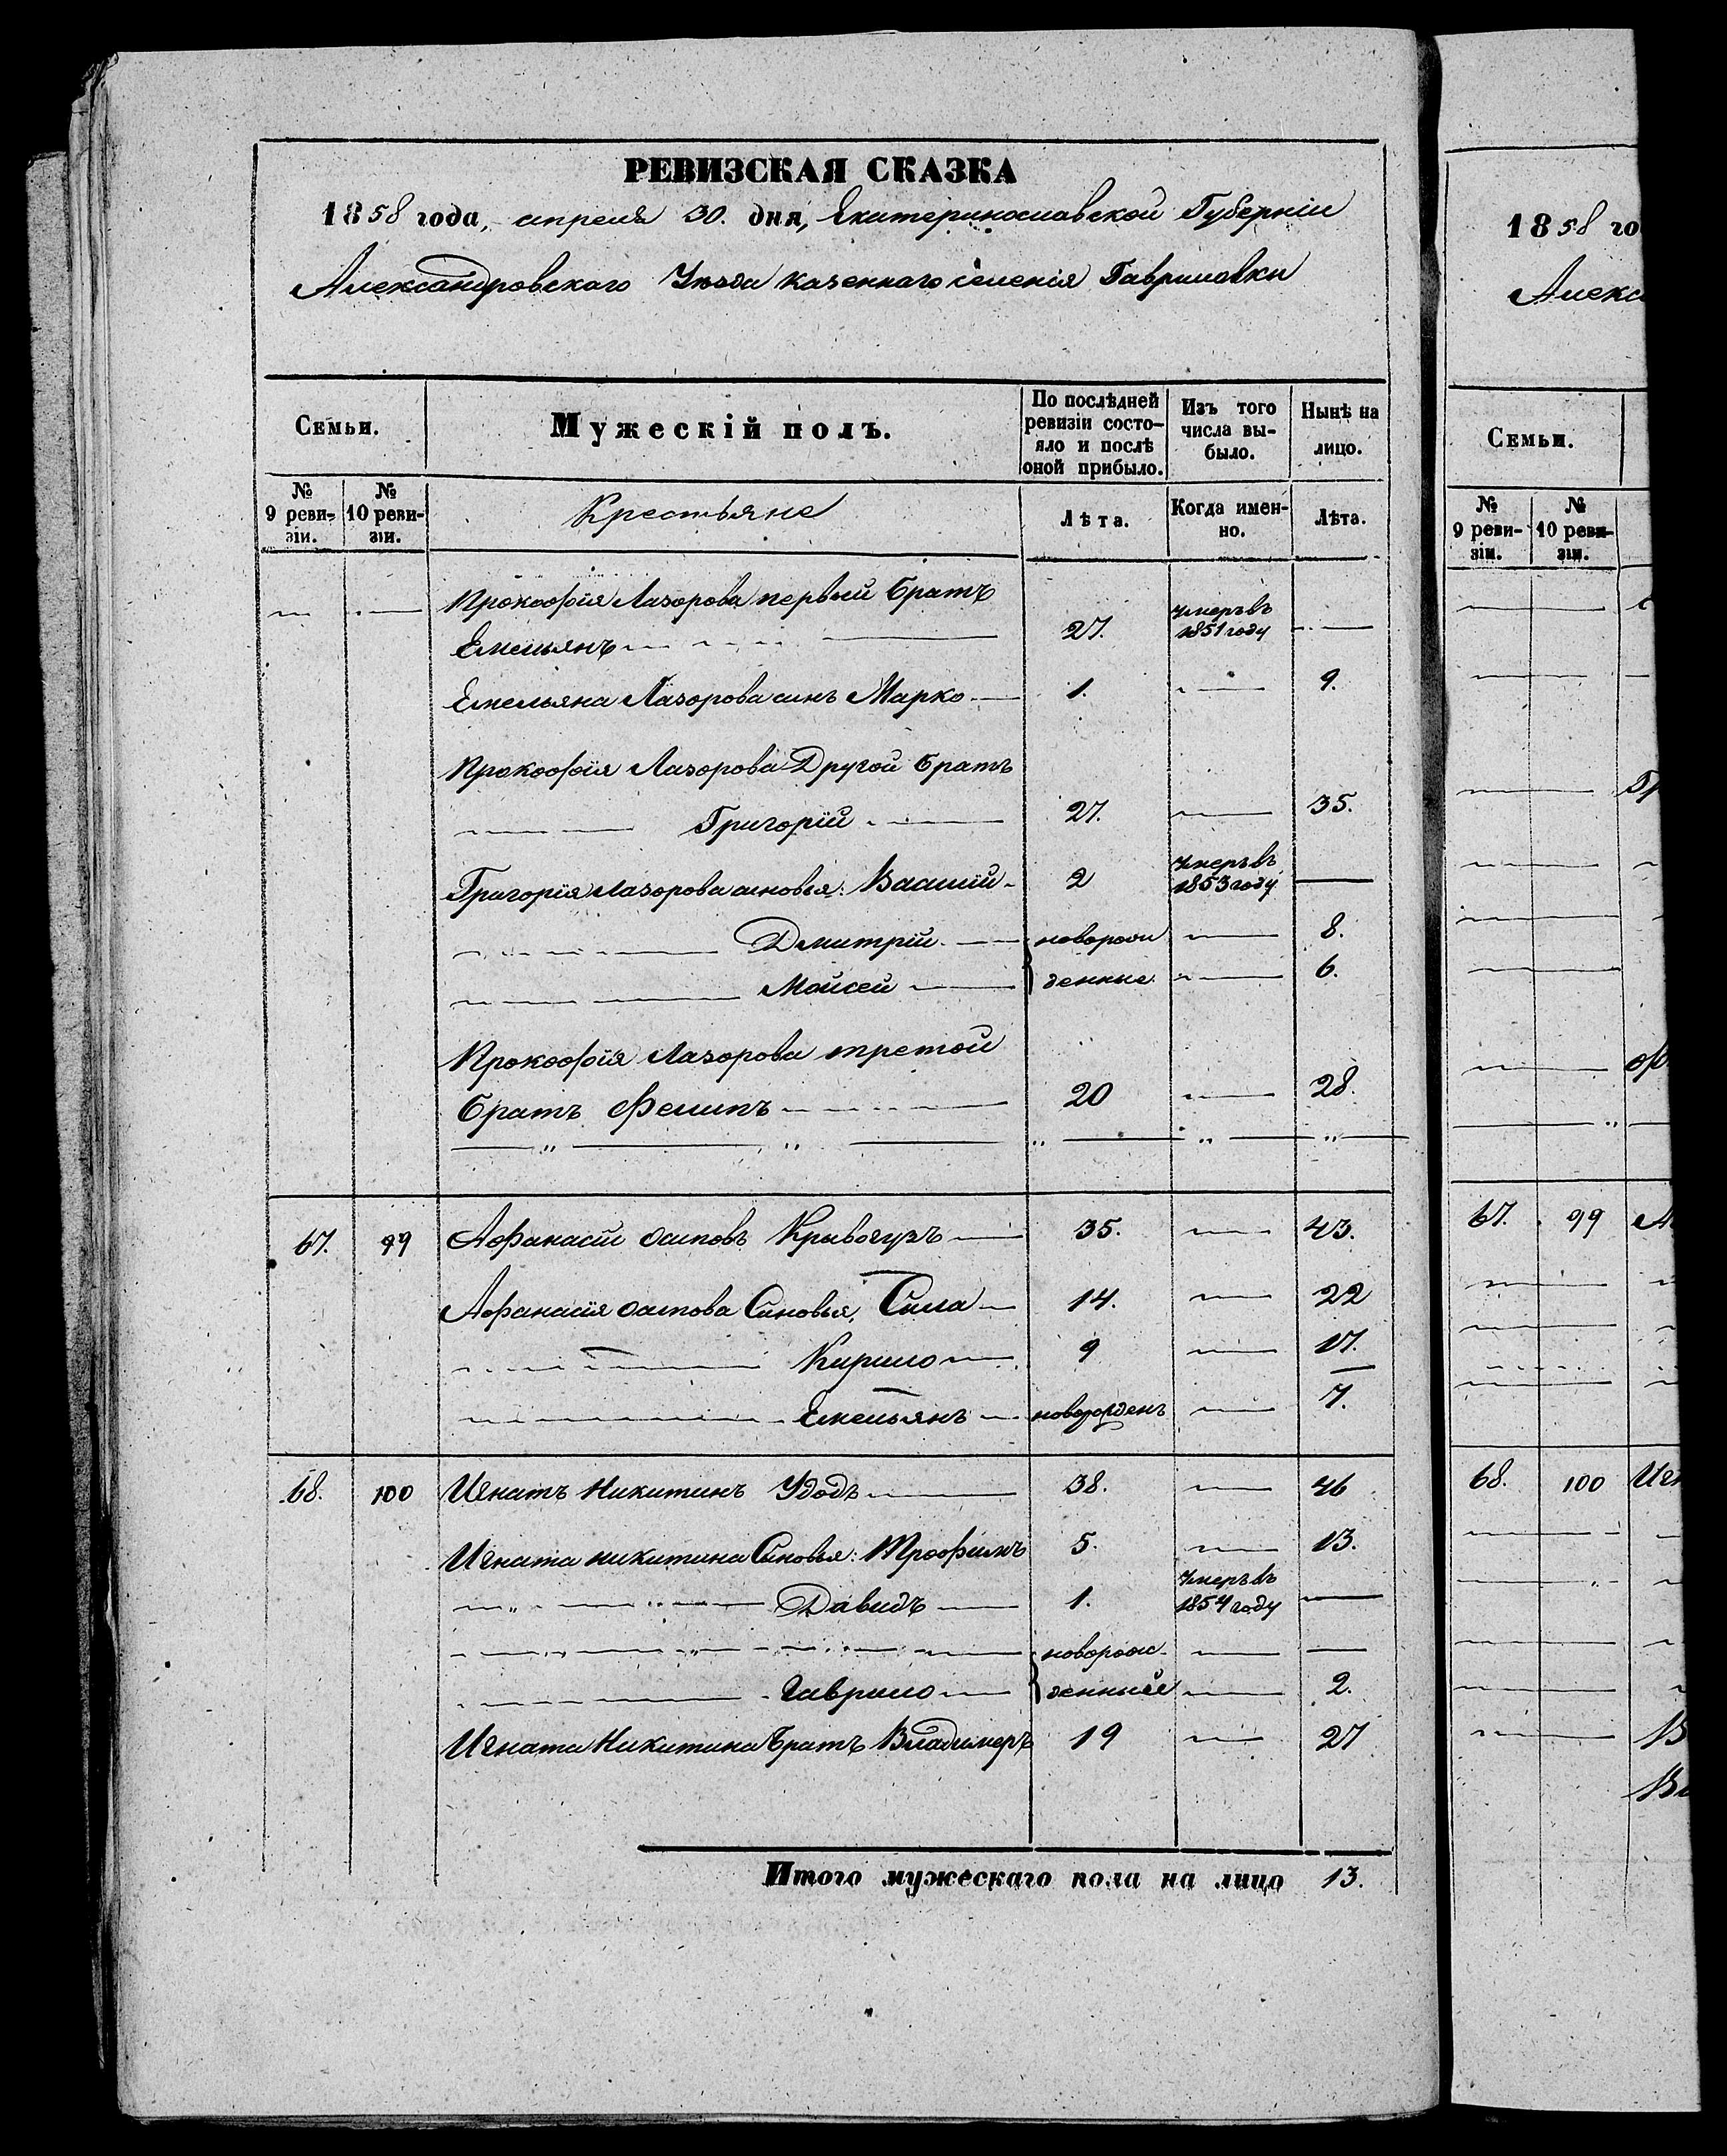 РЕВИЗСКАЯ СКАЗКА
1858 года, апреля 30. дня, Екатеринославской Губерніи
Александровскаго Уезда казеннаго селенія Гавриловки
Семьи.
Мужескій полъ.
По послѣдней
ревизіи состо-
яло и послѣ
оной прибыло.
Изъ того
числа вы-
было.
Нынѣ на
лицо.
№
9 реви-
зіи.
№
10 реви-
зіи.
Крестьяне
Лѣта.
Когда имен-
но.
Лѣта.
Прокофія Лазорова первый братъ
Емельянъ 27. умеръ въ 1851 году
Емельяна Лазорова синъ Марко 1. 9.
Прокофія Лазорова Другой братъ
Григорій 27. 35.
Григорія Лазорова синовья: Василій 2 умеръ въ 1853 году
Дмитрій новорож 8.
Мойсей денные 6.
Прокофія Лазорова третой
братъ Филипъ 20 28.
67. 99 Афанасій Осиповъ Кривогузъ 35. 43.
Афанасія Осипова Синовья, Сила 14. 22
Кирило 9 17.
Емельянъ новорожденъ 7.
68. 100 Игнатъ Никитинъ Удодъ 38. 46
Игната Никитина Синовья: Трофимъ 5. 13.
Давидъ 1. умеръ въ 1854 году
новорож
Гаврило денный 2.
Игната Никитина Братъ Владимеръ 19 27
Итого мужескаго пола на лицо 13.
1858 го
Алекс
Семьи.
№
9 реви-
зіи.
№
10 реви-
зіи.
67. 99
68. 100 Иг